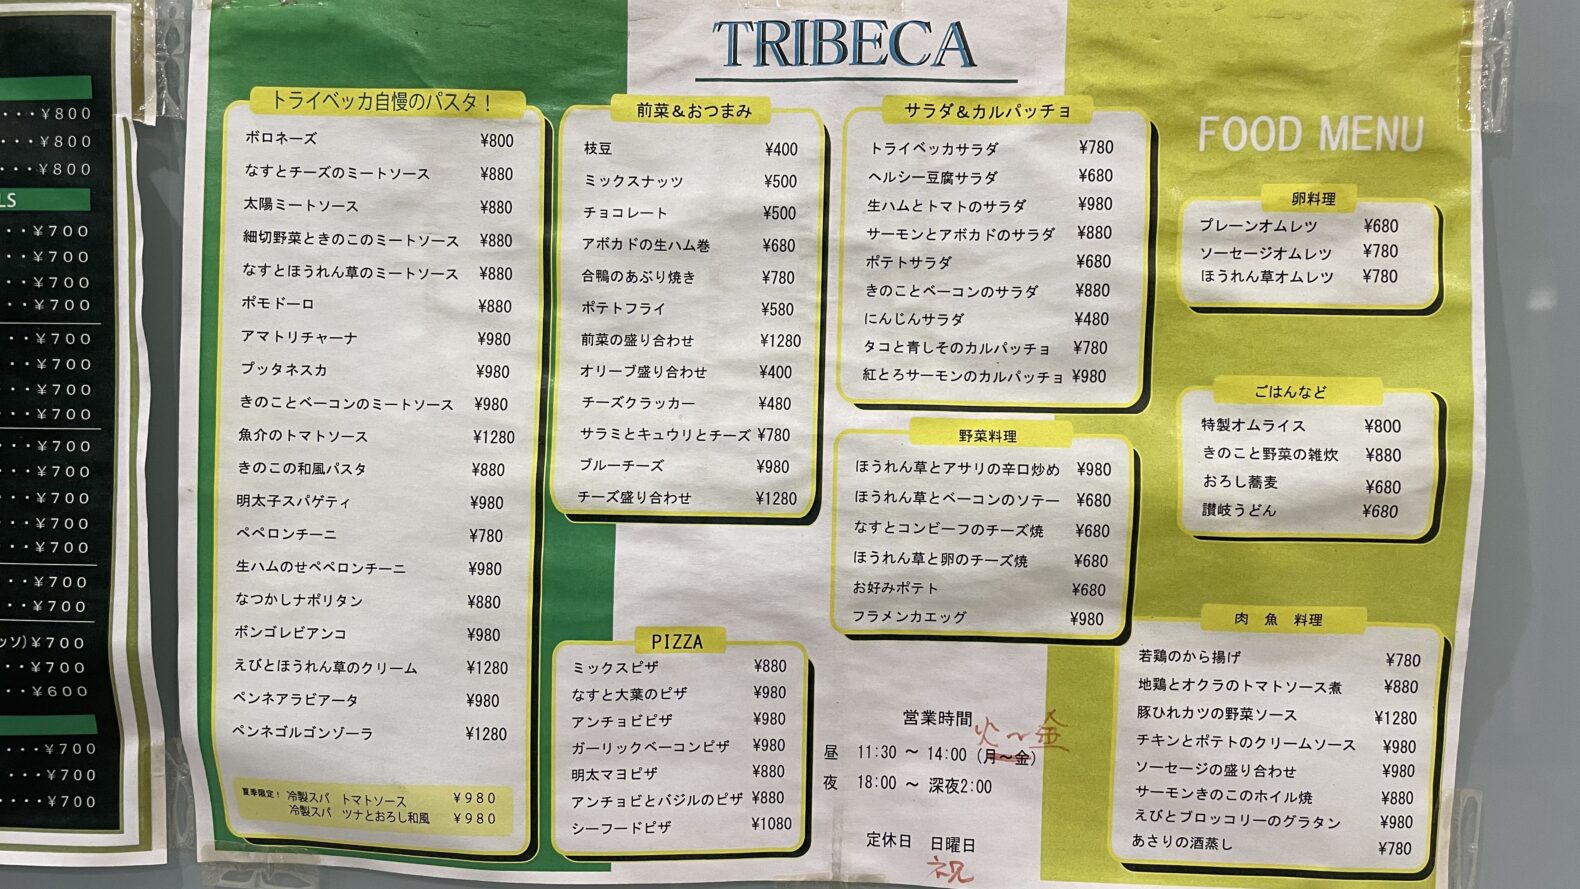 ・・・・¥800
・・・・¥800
・・・・¥800
LS
・・・¥700
・・・¥700
・・・¥700
・・・¥700
・・・¥700
・・・¥700
・・・¥700
・・・¥700
・・・¥700
・・・¥700
・・・¥700
・・・¥700
・・・¥700
・・・¥700
・・・¥700
ッソ)¥700
・・・¥700
・・・¥600
・・・・¥700
・・・・¥700
・・・・¥700
TRIBECA
FOOD MENU
トライベッカ自慢のパスタ！
ボロネーズ ¥800
なすとチーズのミートソース ¥880
太陽ミートソース ¥880
細切野菜ときのこのミートソース ¥880
なすとほうれん草のミートソース ¥880
ポモドーロ ¥880
アマトリチャーナ ¥980
プッタネスカ ¥980
きのことベーコンのミートソース ¥980
魚介のトマトソース ¥1280
きのこの和風パスタ ¥880
明太子スパゲティ ¥980
ペペロンチーニ ¥780
生ハムのせペペロンチーニ ¥980
なつかしナポリタン ¥880
ボンゴレビアンコ ¥980
えびとほうれん草のクリーム ¥1280
ペンネアラビアータ ¥980
ペンネゴルゴンゾーラ ¥1280
夏季限定！ 冷製スパ トマトソース ¥980
冷製スパ ツナとおろし和風 ¥980
前菜＆おつまみ
枝豆 ¥400
ミックスナッツ ¥500
チョコレート ¥500
アボカドの生ハム巻 ¥680
合鴨のあぶり焼き ¥780
ポテトフライ ¥580
前菜の盛り合わせ ¥1280
オリーブ盛り合わせ ¥400
チーズクラッカー ¥480
サラミとキュウリとチーズ ¥780
ブルーチーズ ¥980
チーズ盛り合わせ ¥1280
PIZZA
ミックスピザ ¥880
なすと大葉のピザ ¥980
アンチョビピザ ¥980
ガーリックベーコンピザ ¥980
明太マヨピザ ¥880
アンチョビとバジルのピザ ¥880
シーフードピザ ¥1080
サラダ＆カルパッチョ
トライベッカサラダ ¥780
ヘルシー豆腐サラダ ¥680
生ハムとトマトのサラダ ¥980
サーモンとアボカドのサラダ ¥880
ポテトサラダ ¥680
きのことベーコンのサラダ ¥880
にんじんサラダ ¥480
タコと青しそのカルパッチョ ¥780
紅とろサーモンのカルパッチョ ¥980
野菜料理
ほうれん草とアサリの辛口炒め ¥980
ほうれん草とベーコンのソテー ¥680
なすとコンビーフのチーズ焼 ¥680
ほうれん草と卵のチーズ焼 ¥680
お好みポテト ¥680
フラメンカエッグ ¥980
営業時間
火～金
昼 11:30 ～ 14:00 (月～金)
夜 18:00 ～ 深夜2:00
定休日 日曜日
祝
卵料理
プレーンオムレツ ¥680
ソーセージオムレツ ¥780
ほうれん草オムレツ ¥780
ごはんなど
特製オムライス ¥800
きのこと野菜の雑炊 ¥880
おろし蕎麦 ¥680
讃岐うどん ¥680
肉 魚 料理
若鶏のから揚げ ¥780
地鶏とオクラのトマトソース煮 ¥880
豚ひれカツの野菜ソース ¥1280
チキンとポテトのクリームソース ¥980
ソーセージの盛り合わせ ¥980
サーモンきのこのホイル焼 ¥880
えびとブロッコリーのグラタン ¥980
あさりの酒蒸し ¥780